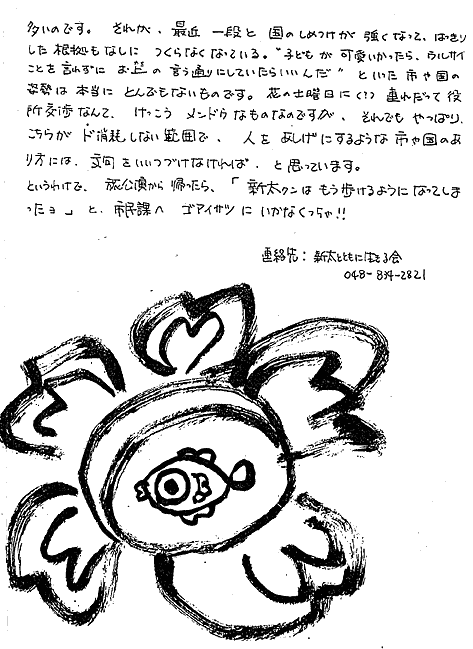 多いのです。それが、最近 一段と 国のしめつけが 強くなって、はっきり
した 根拠もなしに つくらなくなっている。"子どもが 可愛いかったら、ウルサイ
ことを言わずに お上の 言う通りにしていたらいいんだ" といった 市や国の
姿勢は 本当に とんでもないものです。花の土曜日に(?) 連れだって 役
所交渉なんて、けっこう メンドウなものなのですが、それでも やっぱり、
こちらが ド消耗しない範囲で、人を あしげにするような 市や国のあ
り方には、文句を いいつづけなければ、と思っています。
というわけで、旅公演から 帰ったら、「新太クンは もう歩けるようになってしま
ったョ」と、市民課へ ゴアイサツに いかなくっちゃ!!
連絡先: 新太とともに 会
048-834-2821